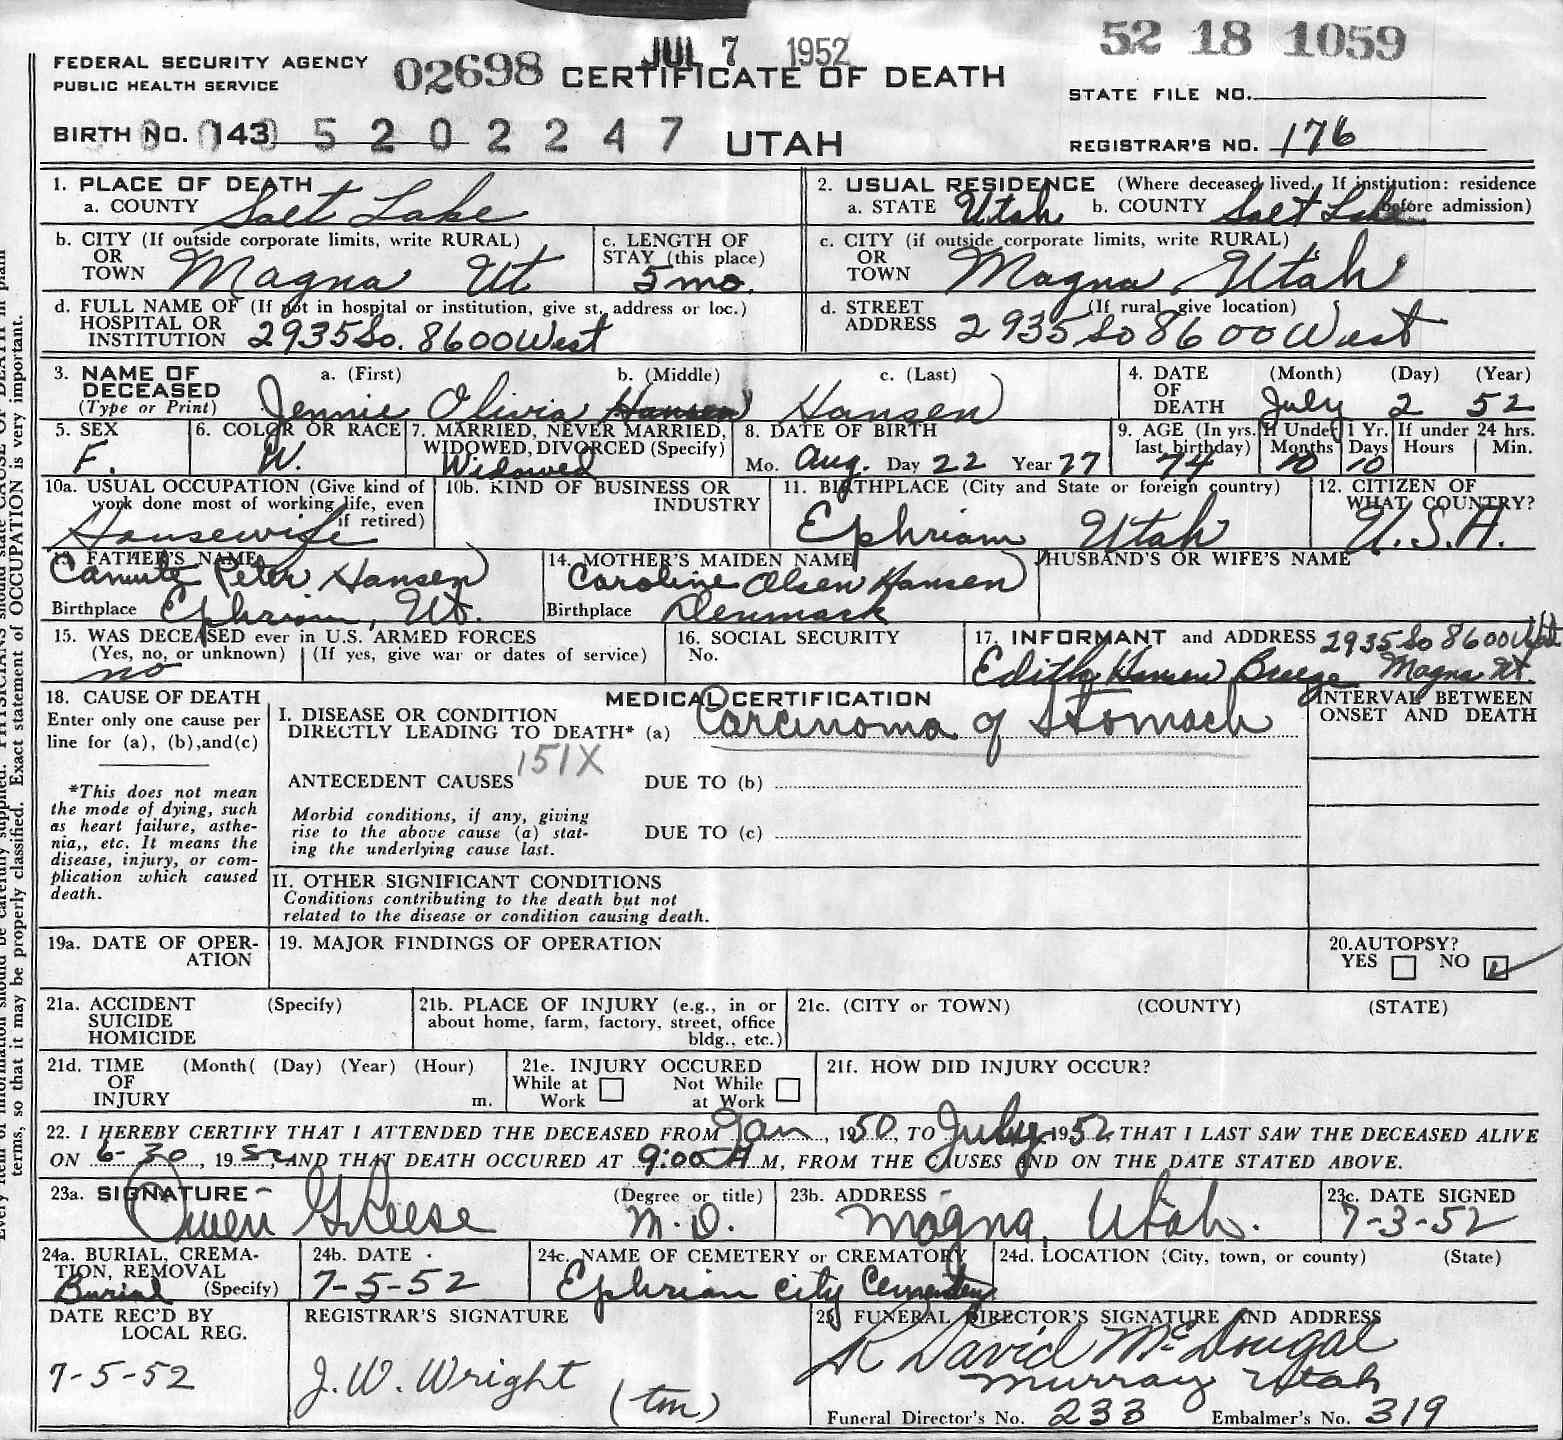 JUL 7 1952
52 18 1059
FEDERAL SECURITY AGENCY
PUBLIC HEALTH SERVICE
02698 CERTIFICATE OF DEATH
STATE FILE NO.
BIRTH NO. 143 5 2 0 2 2 4 7
UTAH
REGISTRAR'S NO. 176
1. PLACE OF DEATH
a. COUNTY Salt Lake
2. USUAL RESIDENCE (Where deceased lived. If institution: residence before admission)
a. STATE Utah b. COUNTY Salt Lake
b. CITY (If outside corporate limits, write RURAL)
OR
TOWN Magna Ut
c. LENGTH OF
STAY (this place)
5 mo.
c. CITY (if outside corporate limits, write RURAL)
OR
TOWN Magna, Utah
d. FULL NAME OF (If not in hospital or institution, give st. address or loc.)
HOSPITAL OR
INSTITUTION 2935 So. 8600 West
d. STREET (If rural, give location)
ADDRESS 2935 So 8600 West
3. NAME OF DECEASED
(Type or Print)
a. (First) b. (Middle) c. (Last)
Jennie Olivia Hansen Hansen
4. DATE OF DEATH
(Month) (Day) (Year)
July 2 52
5. SEX
F.
6. COLOR OR RACE
W.
7. MARRIED, NEVER MARRIED,
WIDOWED, DIVORCED (Specify)
Widowed
8. DATE OF BIRTH
Mo. Aug. Day 22 Year 77
9. AGE (In yrs. last birthday)
74
If Under 1 Yr.
Months Days
10 10
If under 24 hrs.
Hours Min.
10a. USUAL OCCUPATION (Give kind of
work done most of working life, even
if retired)
Housewife
10b. KIND OF BUSINESS OR
INDUSTRY
11. BIRTHPLACE (City and State or foreign country)
Ephriam Utah
12. CITIZEN OF
WHAT COUNTRY?
U.S.A.
13 FATHER'S NAME
Canute Peter Hansen
Birthplace Ephriam, Ut.
14. MOTHER'S MAIDEN NAME
Caroline Olsen Hansen
Birthplace Denmark
HUSBAND'S OR WIFE'S NAME
15. WAS DECEASED ever in U.S. ARMED FORCES
(Yes, no, or unknown) (If yes, give war or dates of service)
no
16. SOCIAL SECURITY
No.
17. INFORMANT and ADDRESS 2935 So 8600 West
Edith Hansen Breeze Magna Ut.
18. CAUSE OF DEATH
Enter only one cause per
line for (a), (b), and (c)
*This does not mean
the mode of dying, such
as heart failure, asthe-
nia,, etc. It means the
disease, injury, or com-
plication which caused
death.
MEDICAL CERTIFICATION
I. DISEASE OR CONDITION
DIRECTLY LEADING TO DEATH* (a) Carcinoma of Stomach
151X
ANTECEDENT CAUSES DUE TO (b)
Morbid conditions, if any, giving
rise to the above cause (a) stat-
ing the underlying cause last.
DUE TO (c)
INTERVAL BETWEEN
ONSET AND DEATH
II. OTHER SIGNIFICANT CONDITIONS
Conditions contributing to the death but not
related to the disease or condition causing death.
19a. DATE OF OPER-
ATION
19. MAJOR FINDINGS OF OPERATION
20. AUTOPSY?
YES NO
21a. ACCIDENT (Specify)
SUICIDE
HOMICIDE
21b. PLACE OF INJURY (e.g., in or
about home, farm, factory, street, office
bldg., etc.)
21c. (CITY or TOWN) (COUNTY) (STATE)
21d. TIME (Month( (Day) (Year) (Hour)
OF
INJURY m.
21e. INJURY OCCURED
While at Work Not While at Work
21f. HOW DID INJURY OCCUR?
22. I HEREBY CERTIFY THAT I ATTENDED THE DECEASED FROM Jan, 1950, TO July, 1952, THAT I LAST SAW THE DECEASED ALIVE
ON 6-30, 1952, AND THAT DEATH OCCURED AT 9:00 A M, FROM THE CAUSES AND ON THE DATE STATED ABOVE.
23a. SIGNATURE (Degree or title)
Owen G Reese M.D.
23b. ADDRESS
Magna, Utah.
23c. DATE SIGNED
7-3-52
24a. BURIAL, CREMA-
TION, REMOVAL
Burial (Specify)
24b. DATE
7-5-52
24c. NAME OF CEMETERY or CREMATORY
Ephrian City Cemetery
24d. LOCATION (City, town, or county) (State)
DATE REC'D BY
LOCAL REG.
7-5-52
REGISTRAR'S SIGNATURE
J. W. Wright
(tm)
25 FUNERAL DIRECTOR'S SIGNATURE AND ADDRESS
R David McDougal
Murray Utah
Funeral Director's No. 233 Embalmer's No. 319
terms, so that it may be properly classified. Exact statement of OCCUPATION is very important.